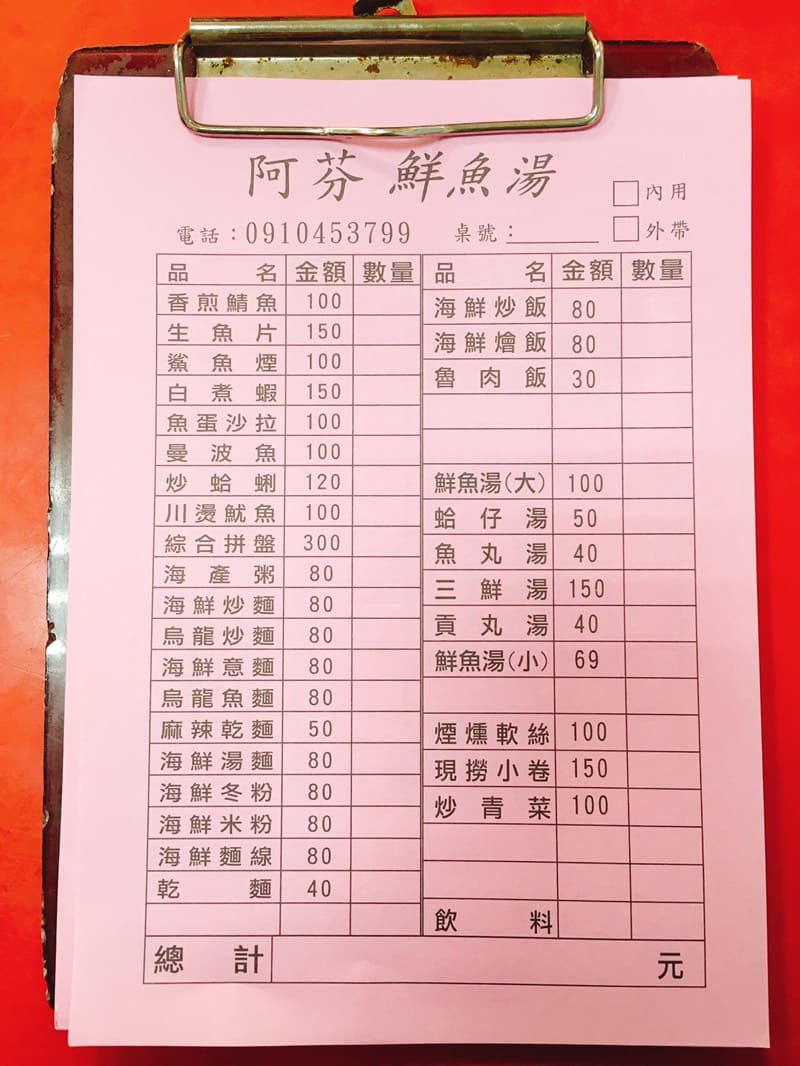 阿芬 鮮魚湯
□內用
電話：0910453799 桌號：________ □外帶
品名 金額 數量
香煎鯖魚 100
生魚片 150
鯊魚煙 100
白煮蝦 150
魚蛋沙拉 100
曼波魚 100
炒蛤蜊 120
川燙魷魚 100
綜合拼盤 300
海產粥 80
海鮮炒麵 80
烏龍炒麵 80
海鮮意麵 80
烏龍魚麵 80
麻辣乾麵 50
海鮮湯麵 80
海鮮冬粉 80
海鮮米粉 80
海鮮麵線 80
乾麵 40
品名 金額 數量
海鮮炒飯 80
海鮮燴飯 80
魯肉飯 30
鮮魚湯(大) 100
蛤仔湯 50
魚丸湯 40
三鮮湯 150
貢丸湯 40
鮮魚湯(小) 69
煙燻軟絲 100
現撈小卷 150
炒青菜 100
飲料
總計 元